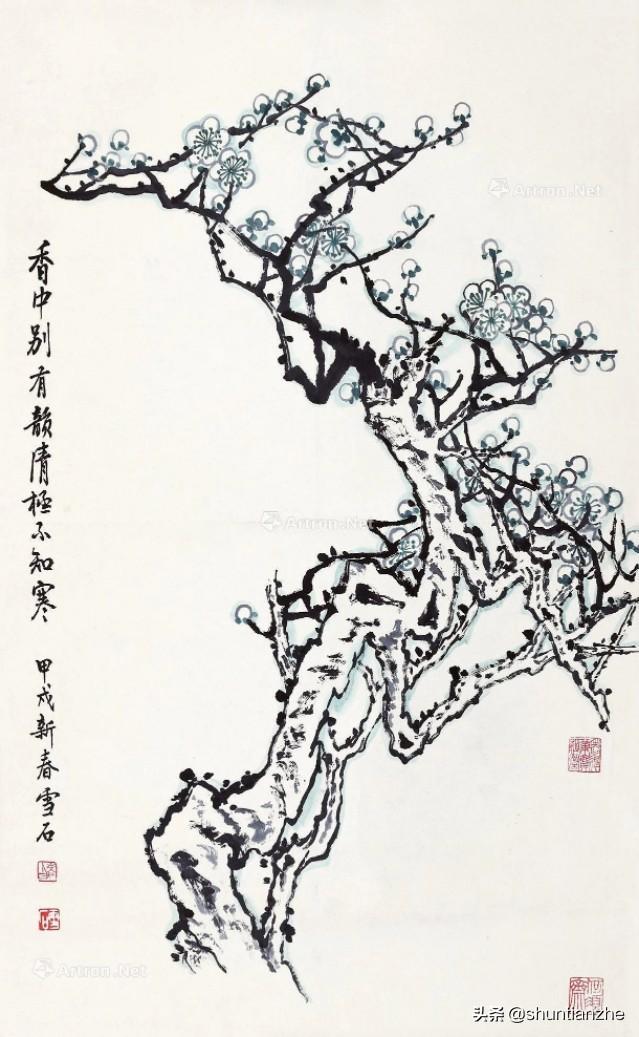 香中别有韻清極不知寒
甲戌新春雪石
Artron.Net
Artron.Net
Artron.Net
头条 @shuntianzhe